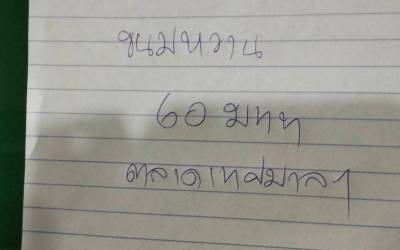 ขนมหวาน
60 บาท
ตลาดเทศบาลฯ